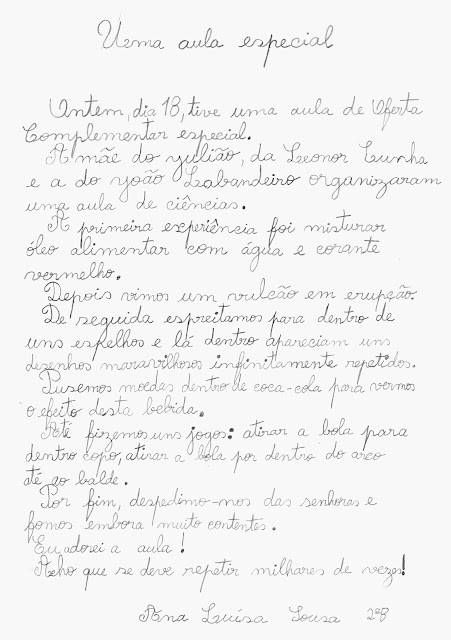 Uma aula especial
Ontem, dia 18, tive uma aula de Oferta
Complementar especial.
A mãe do Julião, da Leonor Cunha
e a do João Labandeiro organizaram
uma aula de ciências.
A primeira experiência foi misturar
óleo alimentar com água e corante
vermelho.
Depois vimos um vulcão em erupção.
De seguida espreitamos para dentro de
uns espelhos e lá dentro apareciam uns
desenhos maravilhosos infinitamente repetidos.
Pusemos moedas dentro de coca-cola para vermos
o efeito desta bebida.
Até fizemos uns jogos: atirar a bola para
dentro copo, atirar a bola por dentro do arco
até ao balde.
Por fim, despedimo-nos das senhoras e
fomos embora muito contentes.
Eu adorei a aula!
Acho que se deve repetir milhares de vezes!
Ana Luísa Sousa 2ºB